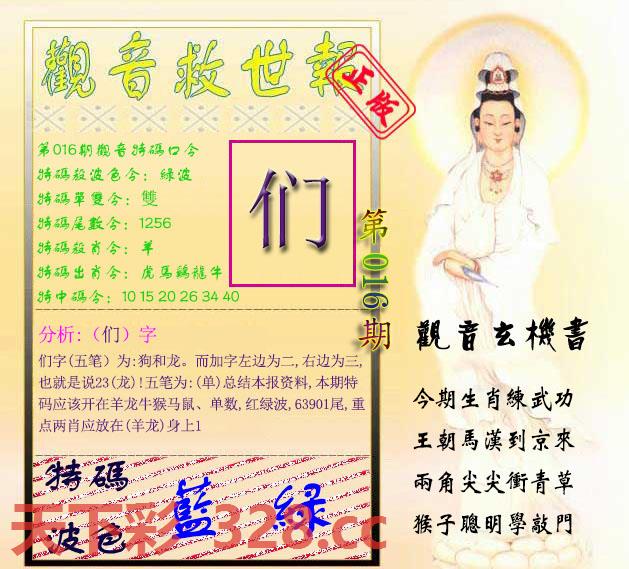 觀音救世報
正版
第016期觀音特碼口令
特碼殺波色令：綠波
特碼單雙令：雙
特碼尾數令：1256
特碼殺肖令：羊
特碼出肖令：虎馬鷄龍牛
特中碼令：10 15 20 26 34 40
们
第016期
分析:（们）字
们字(五笔）为:狗和龙。而加字左边为二,右边为三,
也就是说23(龙)!五笔为:(单)总结本报资料,本期特
码应该开在羊龙牛猴马鼠、单数,红绿波,63901尾,重
点两肖应放在(羊龙)身上1
特碼
波色
藍 綠
天下彩-328.cc
觀音玄機書
今期生肖練武功
王朝馬漢到京來
兩角尖尖衝青草
猴子聰明學敲門